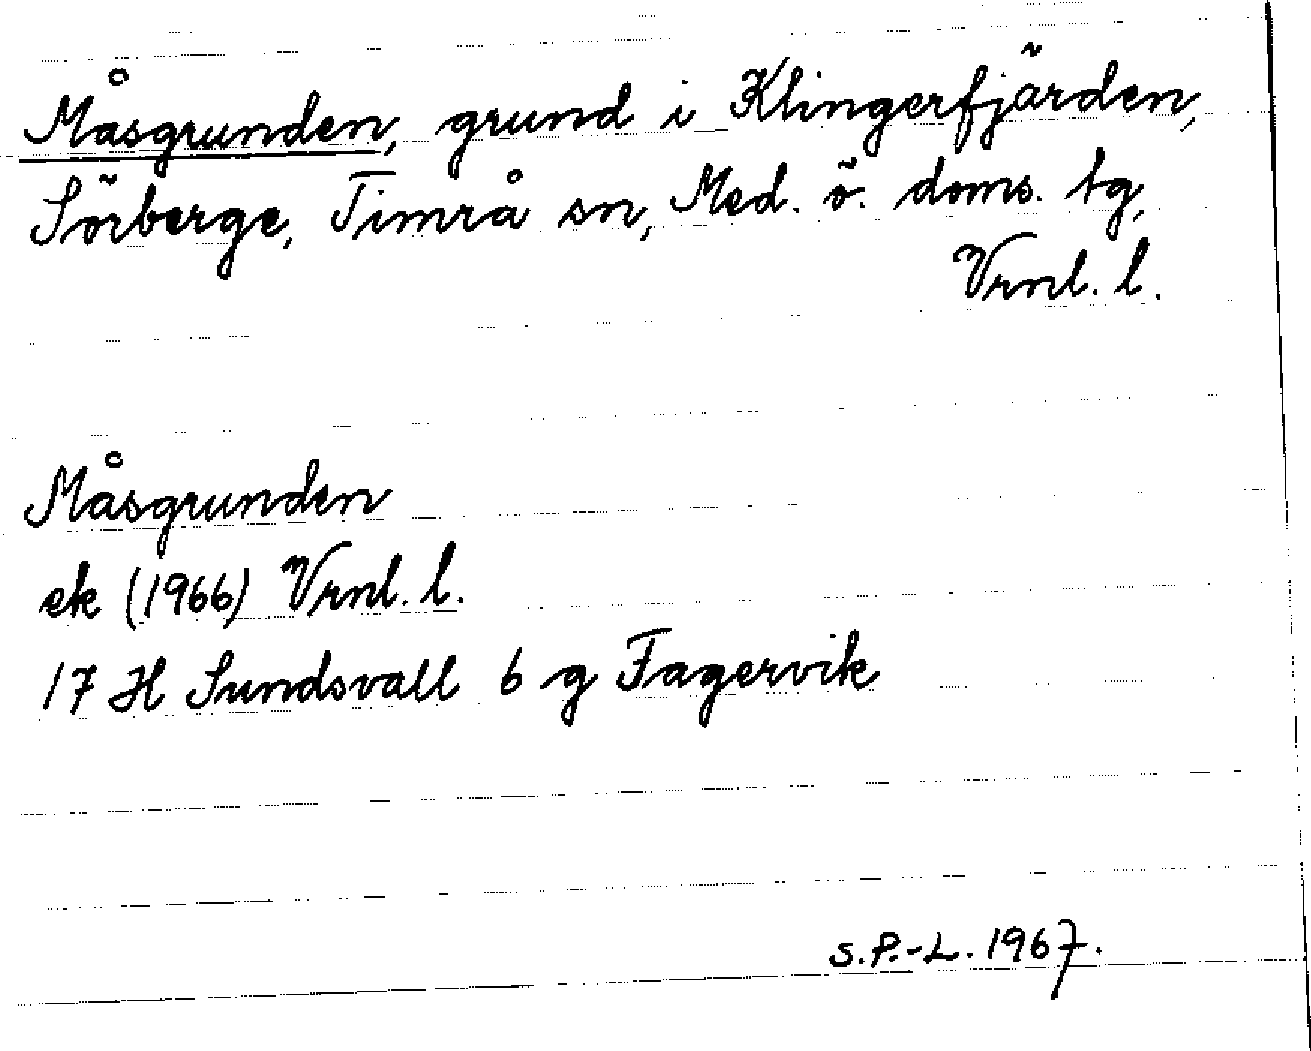 Måsgrunden, grund i Klingerfjärden,
Sörberge, Timrå sn, Med. ö. doms. tg,
Vrnl. l.
Måsgrunden
ek (1966) Vrnl. l.
17 H Sundsvall 6 g Fagervik
S.P.-L. 1967.